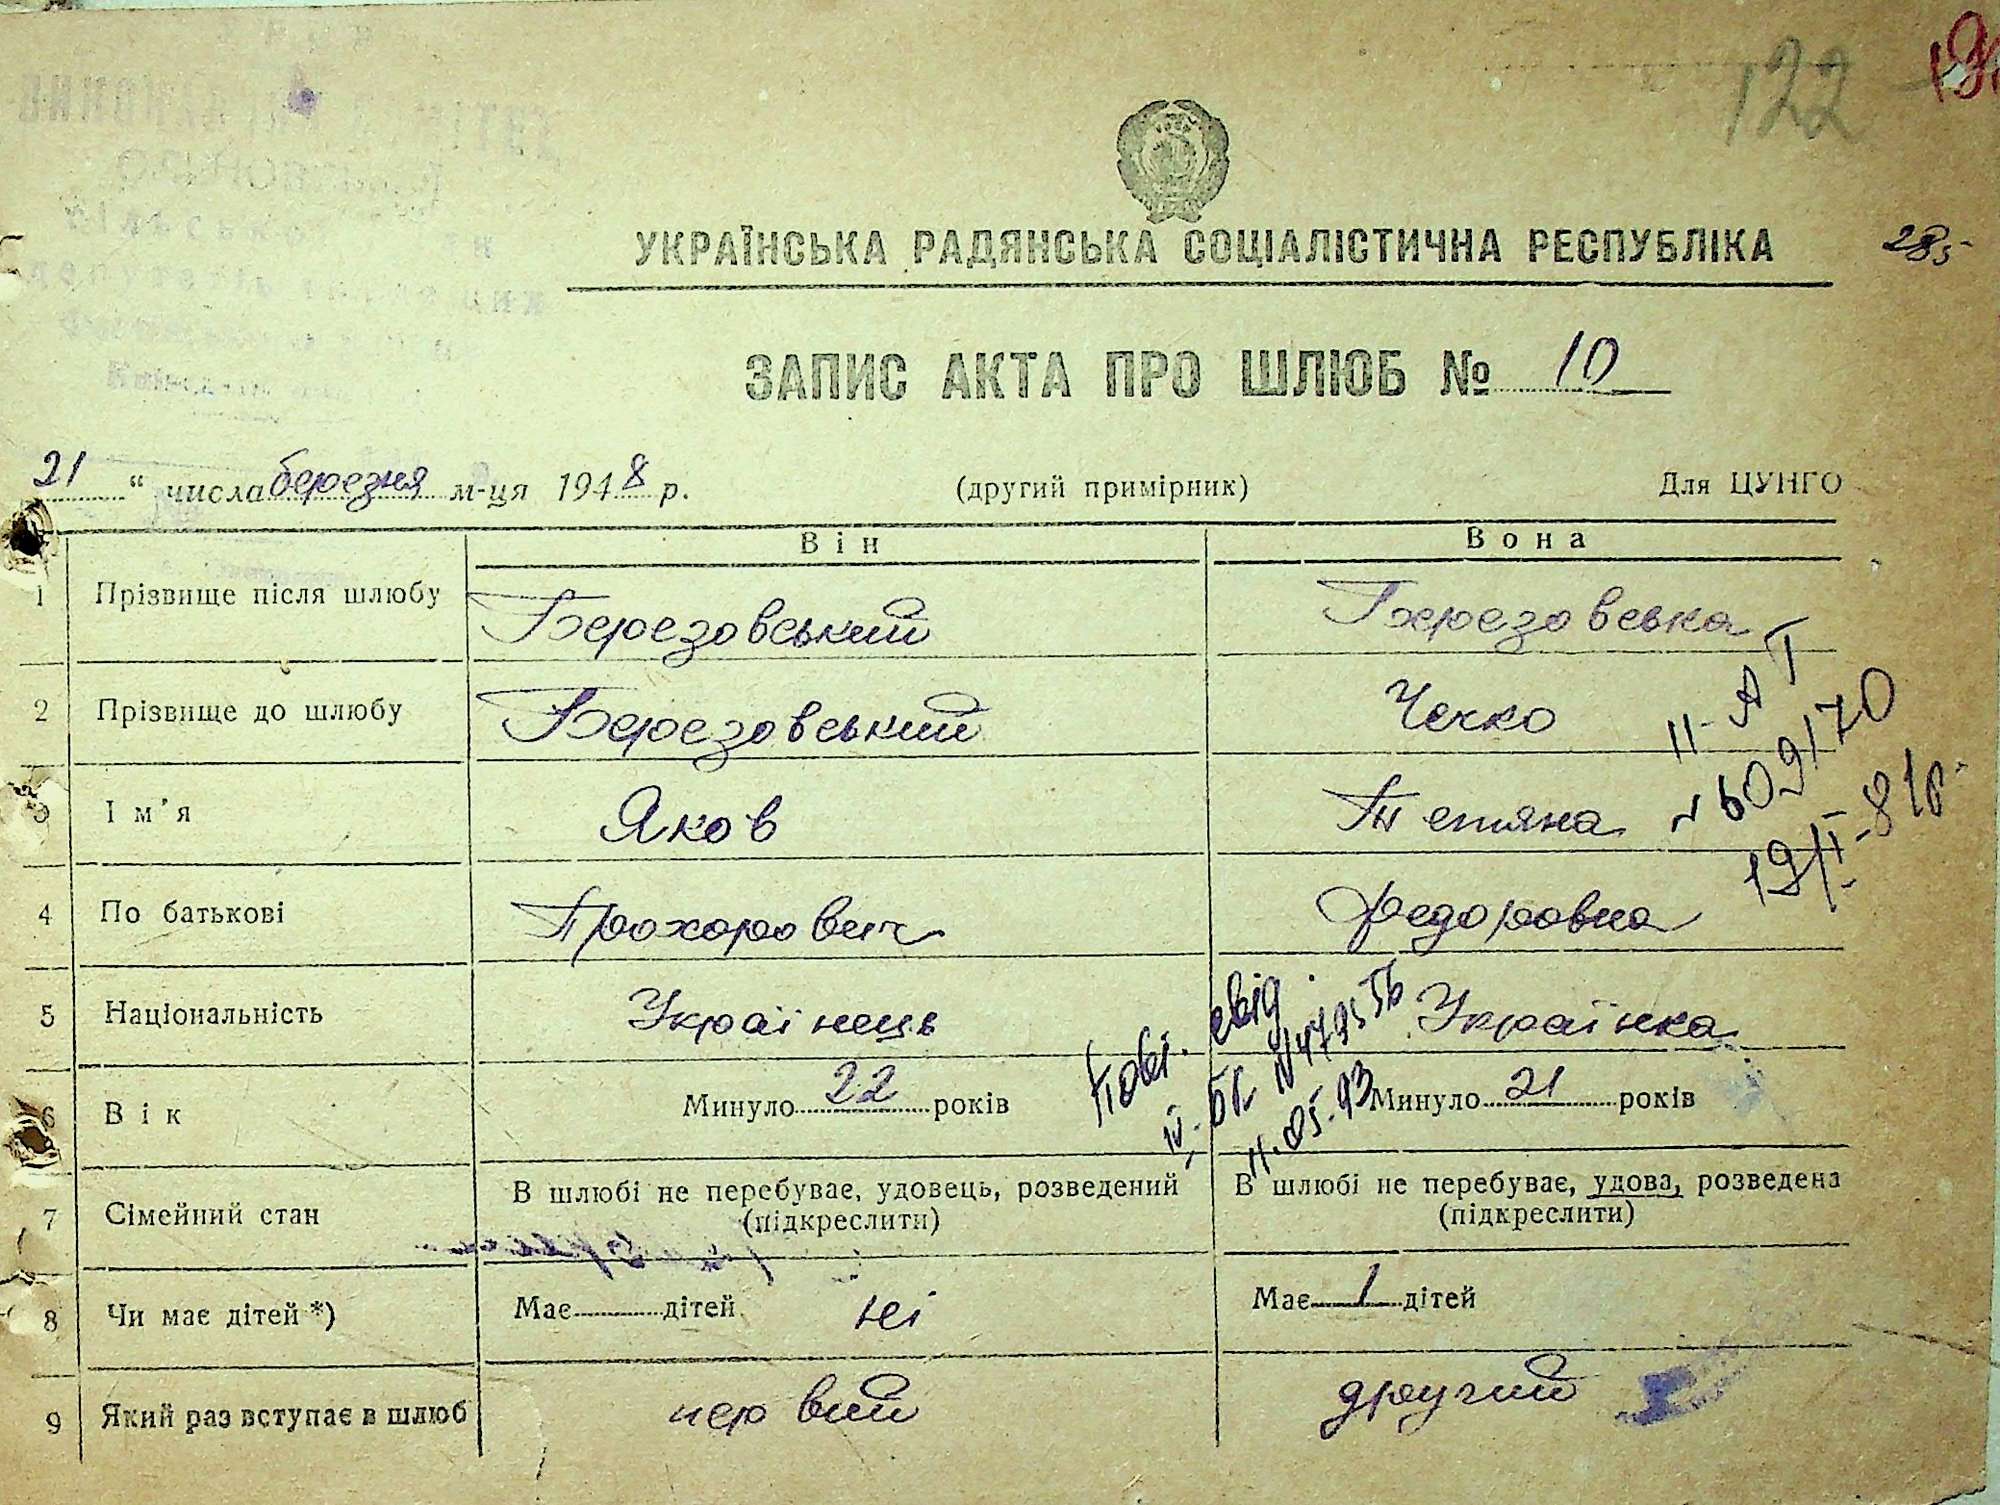 122
285
УКРАЇНСЬКА РАДЯНСЬКА СОЦІАЛІСТИЧНА РЕСПУБЛІКА
ЗАПИС АКТА ПРО ШЛЮБ № 10
21 “ числа березня м-ця 1948 р. (другий примірник) Для ЦУНГО
Він Вона
1 Прізвище після шлюбу Березовський Березовська
2 Прізвище до шлюбу Березовський Чечко
II-АП
№ 609170
19/II-81р.
3 Ім’я Яков Тетяна
4 По батькові Прохорович Федоровна
5 Національність Українець Українка
Повт. свід.
11.05.93
6 Вік Минуло 22 років Минуло 21 років
7 Сімейний стан В шлюбі не перебуває, удовець, розведений (підкреслити) В шлюбі не перебуває, удова, розведена (підкреслити)
8 Чи має дітей *) Має дітей ні Має 1 дітей
9 Який раз вступає в шлюб первий другий